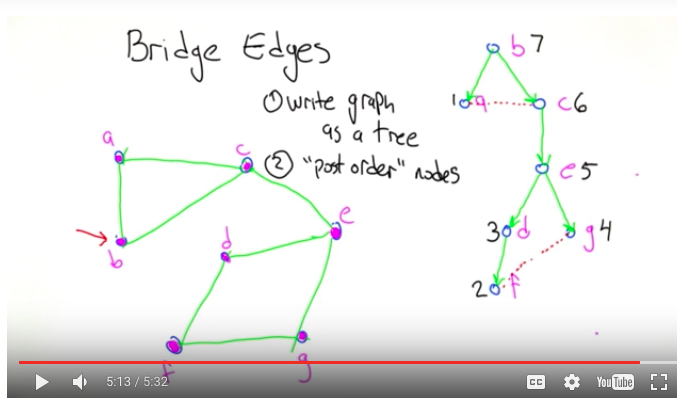 Bridge Edges
① write graph
as a tree
② "post order" nodes
a
c
b
d
e
f
g
b 7
1 a
c 6
e 5
3 d
g 4
2 f
5:13 / 5:32
CC
YouTube